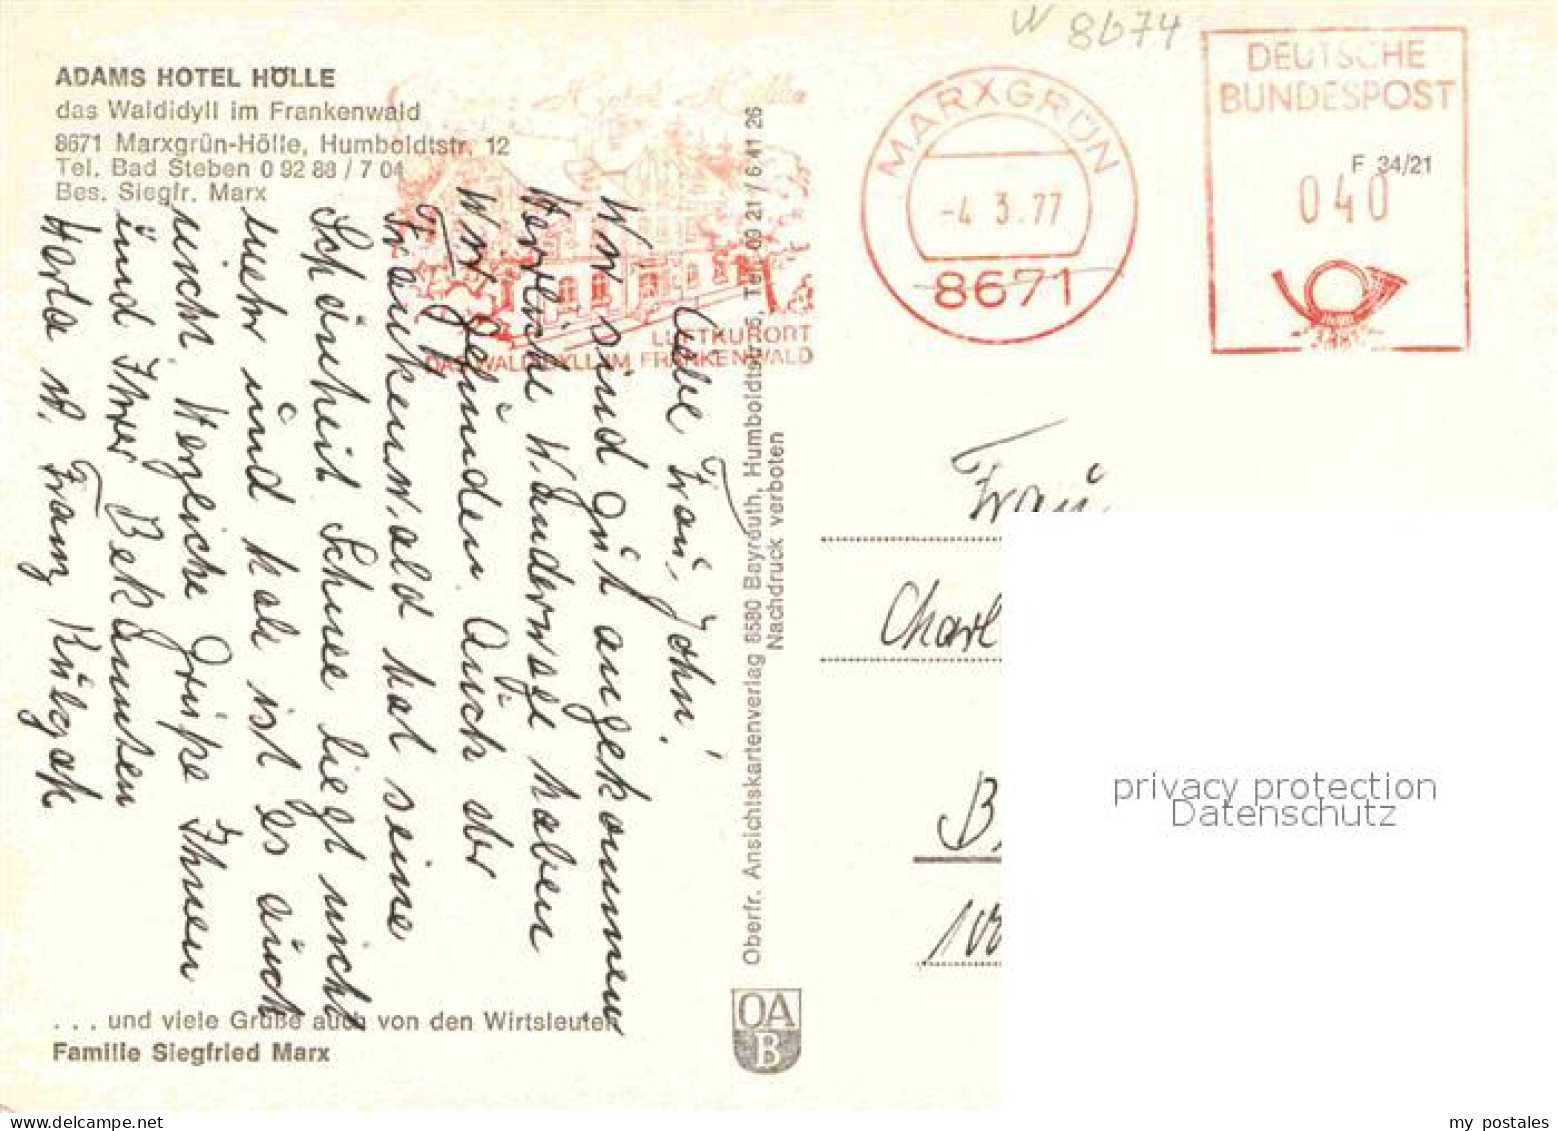 W 8674
ADAMS HOTEL HÖLLE
das Waldidyll im Frankenwald
8671 Marxgrün-Hölle, Humboldtstr. 12
Tel. Bad Steben 0 92 88 / 7 04
Bes. Siegfr. Marx
LUFTKURORT
DAS WALDIDYLL IM FRANKENWALD
MARXGRÜN
-4.3.77
8671
DEUTSCHE
BUNDESPOST
F 34/21
040
Liebe Frau John!
Wir sind gut angekommen
Herrliche Wanderwege haben
Wir gefunden. Auch der
Frankenwald hat seine
Schönheit Schnee liegt nicht
mehr und kalt ist es auch
nicht. Herzliche Grüße Ihnen
und Ihrer Bekannten
Herta u. Franz
. . . und viele Grüße auch von den Wirtsleuten
Familie Siegfried Marx
Oberfr. Ansichtskartenverlag 8580 Bayreuth, Humboldtstr. Tel. 09 21 / 6 41 26
Nachdruck verboten
OA
B
Frau
Charl
B
100
privacy protection
Datenschutz
my postales